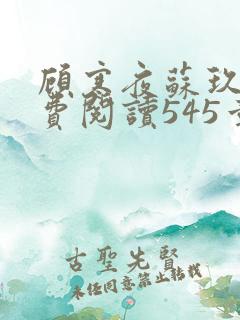 顧寒夜蘇玖
費閱讀545章
古聖先賢
未经同意禁止转载